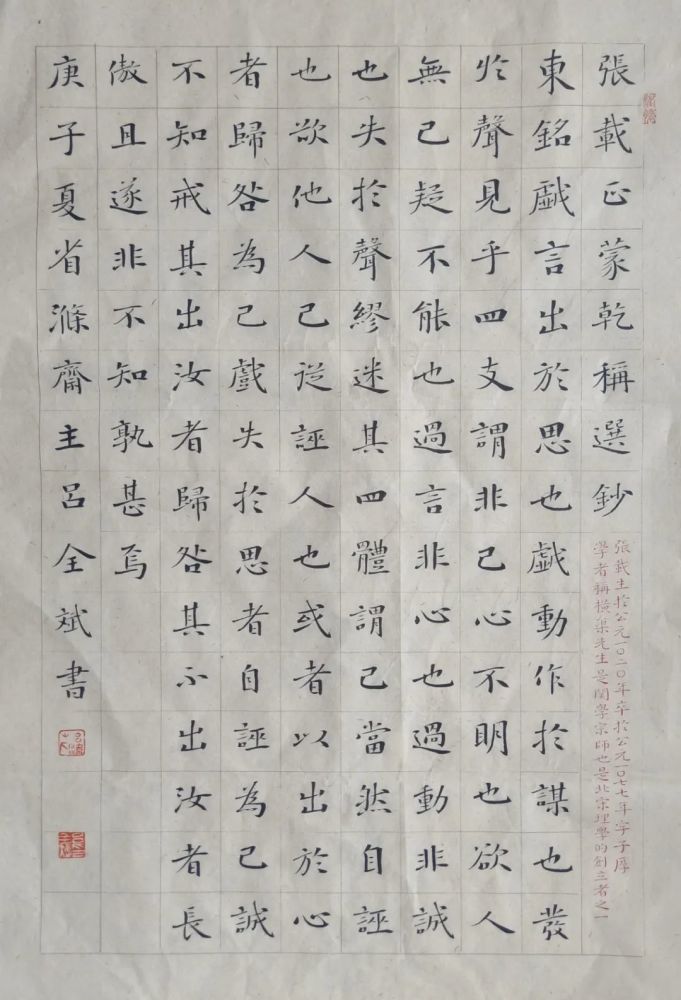 張載正蒙乾稱選鈔
張載生於公元一〇二〇年卒於公元一〇七七年字子厚
學者稱橫渠先生是関學宗師也是北宗理學的創立者之一
東銘戱言出於思也戱動作於謀也發
扵聲見乎四支謂非己心不明也欲人
無己疑不能也過言非心也過動非誠
也失於聲繆迷其四體謂己當然自誣
也欲他人己從誣人也或者以出於心
者歸咎為己戲失於思者自誣為己誠
不知戒其出汝者歸咎其不出汝者長
傲且遂非不知孰甚焉
庚子夏省滌齋主呂全斌書